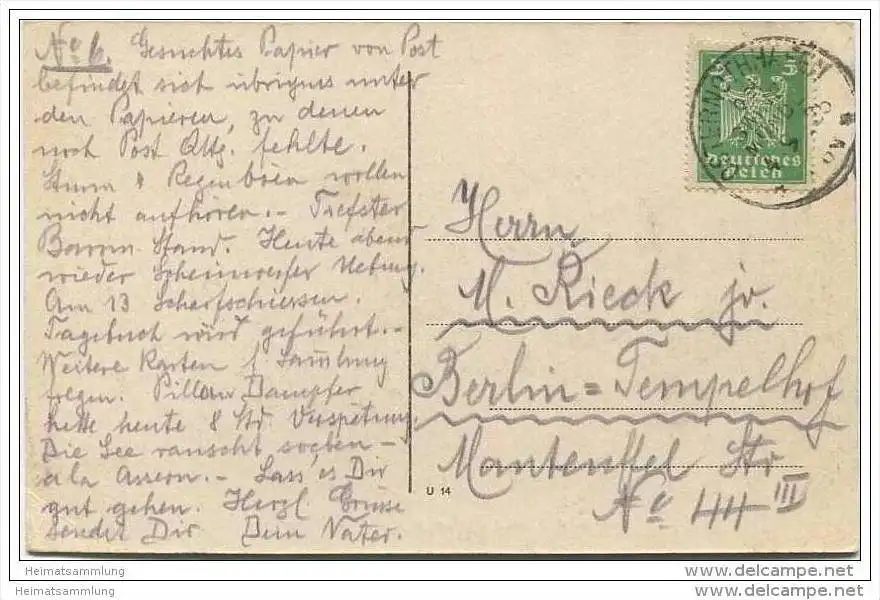 No 6. Gesuchtes Papier von Post
befindet sich übrigens unter
den Papieren, zu denen
noch Post Qttg. fehlte.
Sturm & Regenböen wollen
nicht aufhören.- Tiefster
Barom. Stand. Heute abend
wieder Scheinwerfer Uebung.
Am 13 Scharfschiessen.
Tagebuch wird geführt.-
Weitere Karten f. Sammlung
folgen. Pillau Dampfer
hatte heute 8 Std. Verspätung.
Die See rauscht soeben -
a la Assern.- Lass' es Dir
gut gehen. Herzl. Grüsse
sendet Dir Dein Vater.
5
Deutsches
Reich
Herrn
M. Rieck jr.
Berlin=Tempelhof
Manteuffel Str
No 44 III
U 14
Heimatsammlung
www.delcampe.net
Heimatsammlung
www.delcampe.net